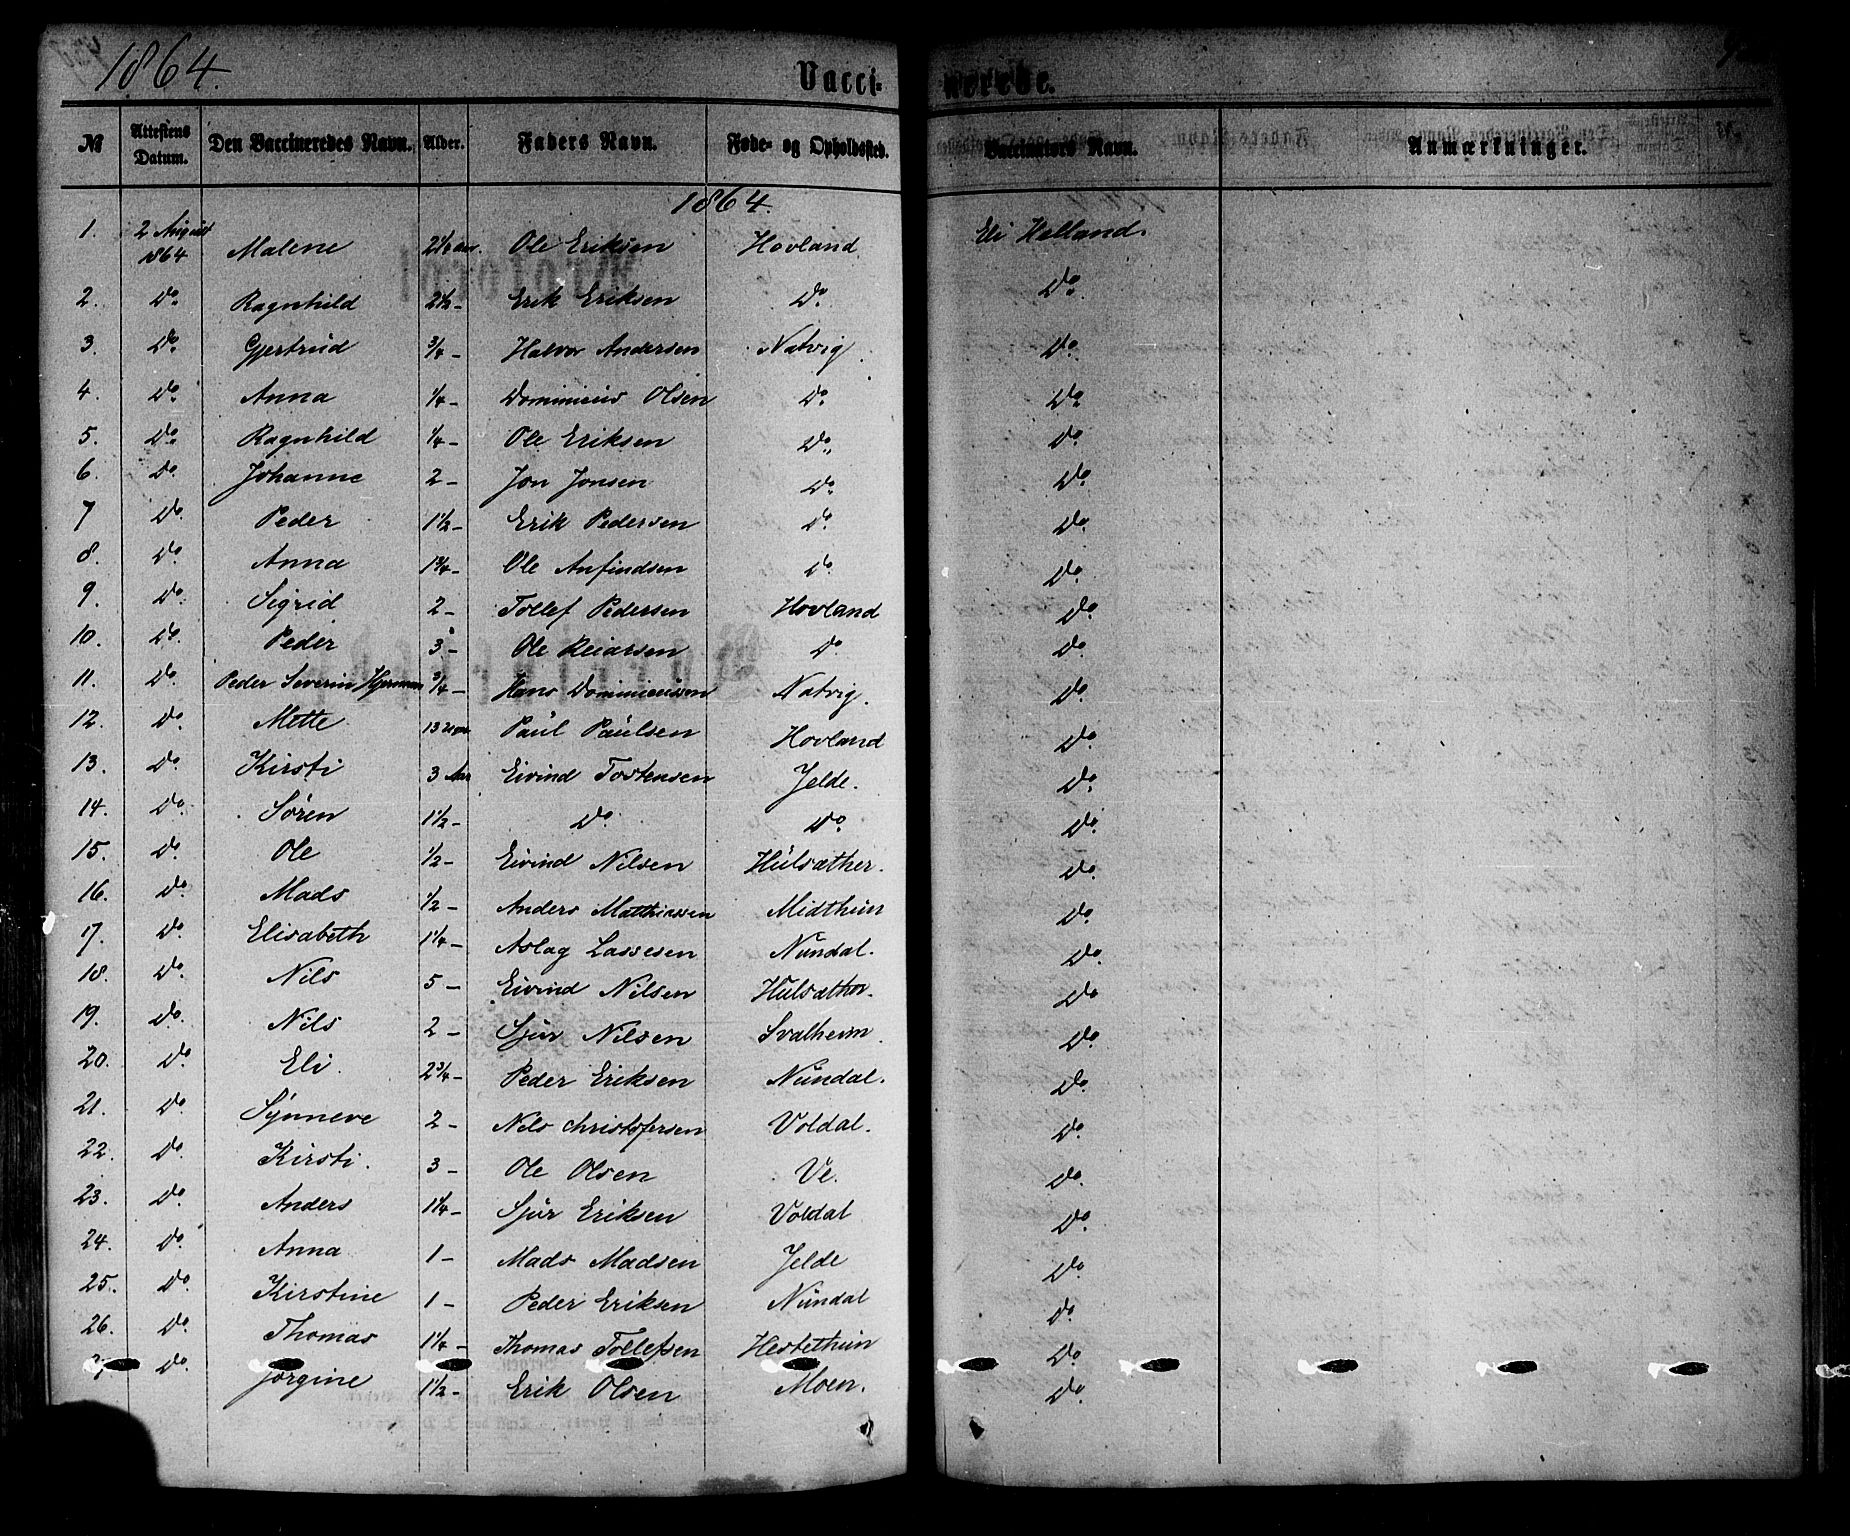 1864.
Vacci- nerede.
№ Attestens Datum. Den Vaccineredes Navn. Alder. Faders Navn. Føde- og Opholdssted. Vaccinators Navn. Anmærkninger.
1864.
1. 2 August 1864 Malene 2 1/2 Aar. Ole Eriksen Hovland Eli Helland.
2. Do. Ragnhild 2 1/2 - Erik Eriksen Do. Do.
3. Do. Gjertrud 3/4 - Halvor Andersen Natvig Do.
4. Do. Anna 1/4 - Dominicus Olsen Do. Do.
5. Do. Ragnhild 1/4 - Ole Eriksen Do. Do.
6. Do. Johanne 2 - Jon Jonsen Do. Do.
7 Do. Peder 1 1/2 - Erik Pedersen Do. Do.
8. Do. Anna 1 3/4 - Ole Anfindsen Do. Do.
9. Do. Sigrid 2 - Tollef Pedersen Hovland Do.
10. Do. Peder 3 - Ole Reiarsen Do. Do.
11. Do. Peder Severin Hjerman 3/4 - Hans Dominicussen Natvig. Do.
12. Do. Mette 13 Paul Paulsen Hovland Do.
13. Do. Kirsti 3 Aar Eivind Tostensen Jelde. Do.
14. Do. Sören 1 1/2 - Do. Do. Do.
15. Do. Ole 1/2 - Eivind Nilsen Hulsæther. Do.
16. Do. Mads 1/2 - Anders Matthiassen Midthun Do.
17. Do. Elisabeth 1 1/4 - Aslag Lassesen Nundal. Do.
18. Do. Nils 5 - Eivind Nilsen Hulsæther. Do.
19. Do. Nils 2 - Sjur Nilsen Svalheim Do.
20. Do. Eli. 2 3/4 - Peder Eriksen Nundal. Do.
21. Do. Synneve 2 - Nils Christofersen Voldal. Do.
22. Do. Kirsti. 3 - Ole Olsen Ve. Do.
23. Do. Anders 1 1/4 - Sjur Eriksen Voldal Do.
24. Do. Anna 1 - Mads Madsen Jelde Do.
25. Do. Kirstine 1 - Peder Eriksen Nundal Do.
26. Do. Thomas 1 1/4 - Thomas Tollefsen Hestethun Do.
Do. Jorgine 1 1/2 - Erik Olsen Moen. Do.